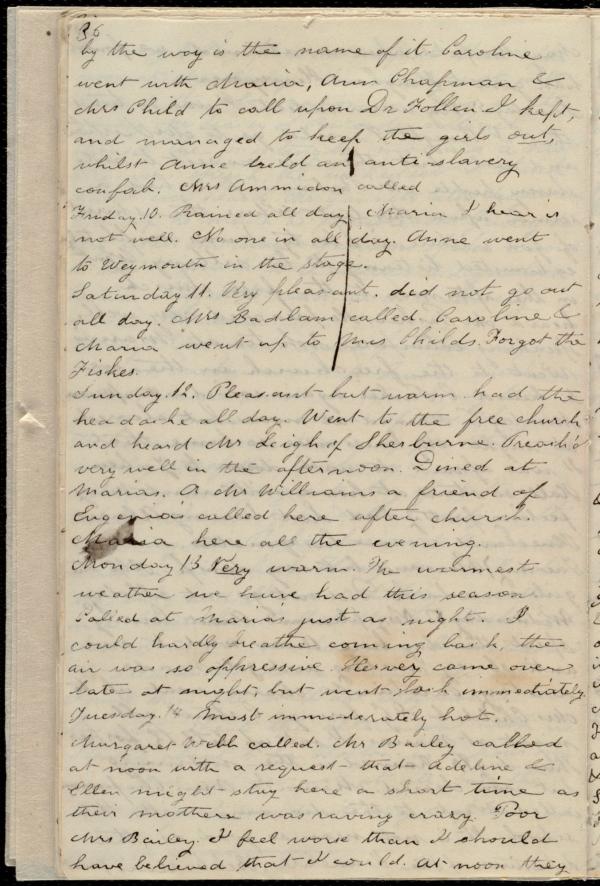 36
by the way is the name of it. Caroline
went with Maria, Ann Chapman &
Mrs Child to call upon Dr Follen. I kept,
and managed to keep the girls out,
whilst Anne held an anti-slavery
confab. Mrs Ammidon called
Friday. 10. Rained all day. Maria I hear is
not well. No one in all day. Anne went
to Weymouth in the stage.
Saturday 11. Very pleasant. did not go out
all day. Mrs Badlam called. Caroline &
Maria went up to Mrs Childs. Forgot the
Fiskes.
Sunday. 12. Pleasant but warm. had the
headache all day. Went to the free church
and heard Mr Leigh of Sherburne. Preach'd
very well in the afternoon. Dined at
Marias. A Mr Williams a friend of
Eugenia's called here after church.
Maria here all the evening.
Monday 13 Very warm. The warmest
weather we have had this season
Called at Marias just as night. I
could hardly breathe coming back, the
air was so oppressive. Hervey came over
late at night, but went back immediately.
Tuesday. 14 Most immoderately hot.
Margaret Webb called. Mr Bailey called
at noon with a request that Adeline &
Ellen might stay here a short time as
their mother was raving crazy. Poor
Mrs Bailey. I feel worse than I should
have believed that I could. At noon they